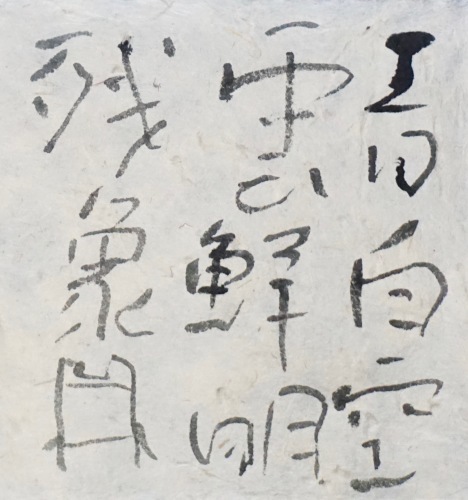 青白空
雲鮮明
残象月